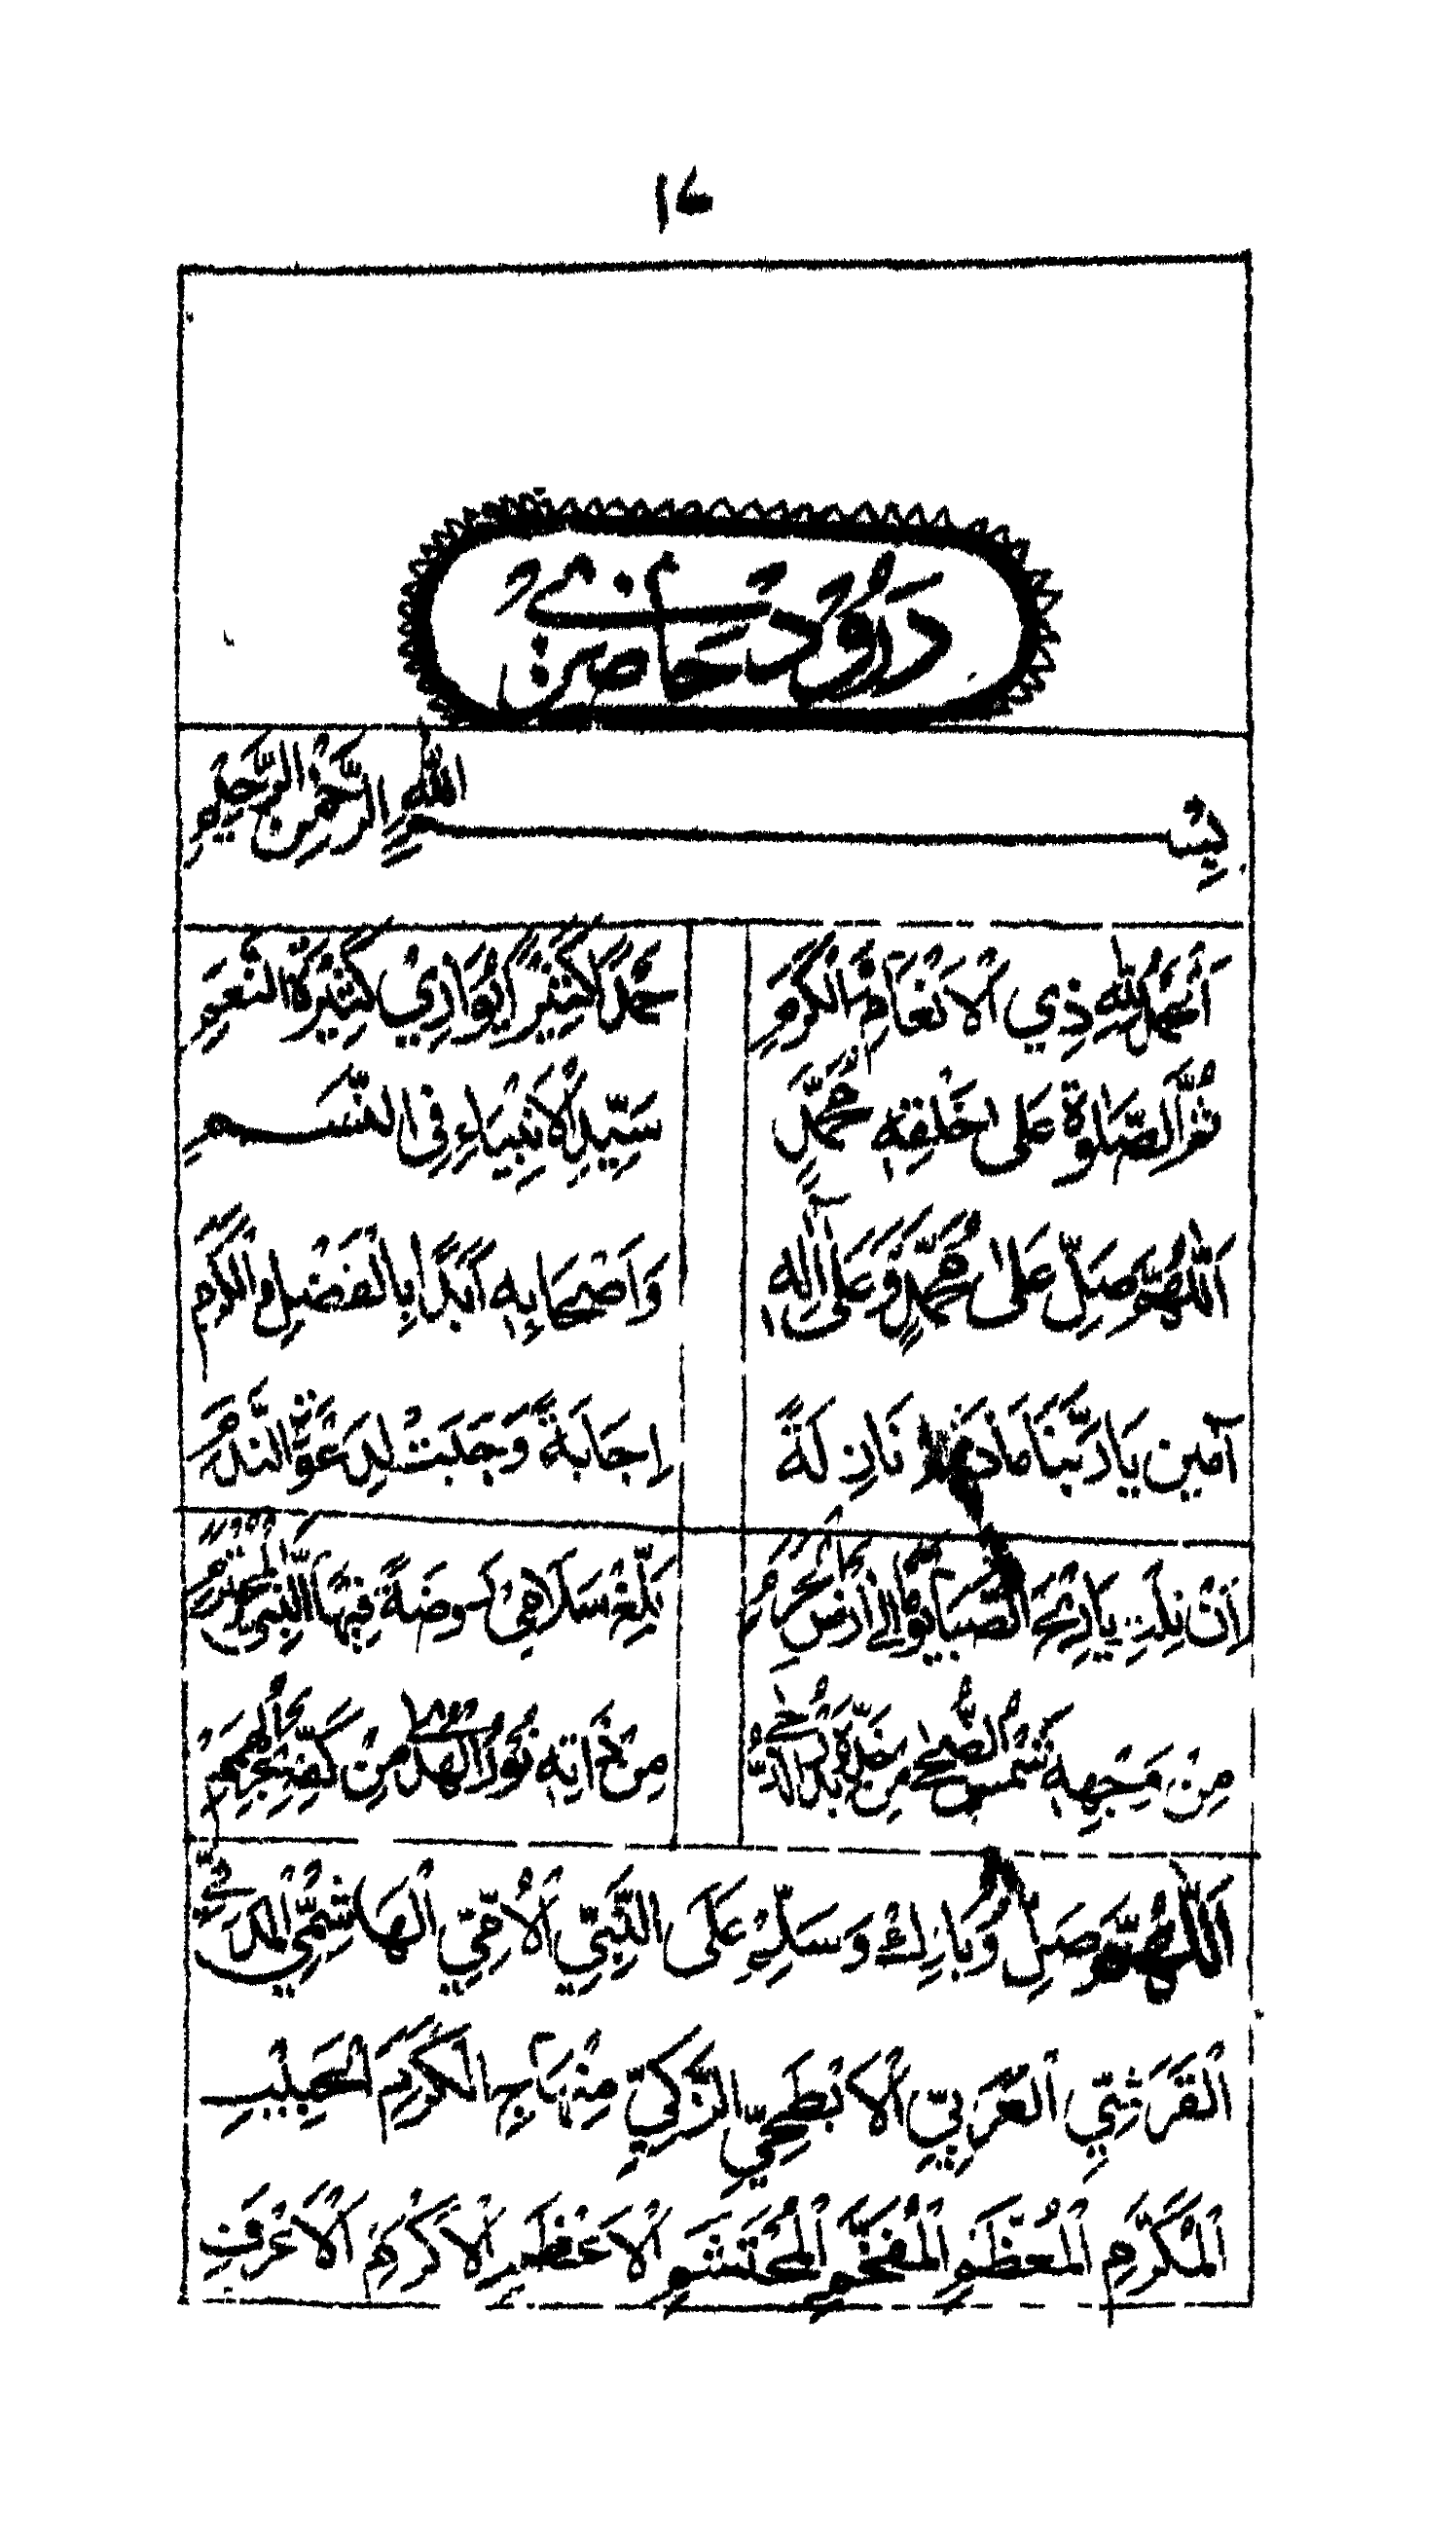 ١٤
دَرُوْدُ حَاضِرِيْ
بِسْمِ اللّٰهِ الرَّحْمٰنِ الرَّحِيْمِ
اَلْحَمْدُ لِلّٰهِ ذِي الْاَنْعَامِ وَالْكَرَمِ حَمْدًا كَثِيْرًا يُوَازِيْ كَثِيْرَةَ النِّعَمِ
ثُمَّ الصَّلٰوةُ عَلٰى خَلْقِهٖ مُحَمَّدٍ سَيِّدِ الْاَنْبِيَاءِ فِى النَّسَمِ
اَللّٰهُمَّ صَلِّ عَلٰى مُحَمَّدٍ وَّعَلٰى اٰلِهٖ وَاَصْحَابِهٖ اَبَدًا بِالْفَضْلِ وَالْكَرَمِ
آمِين يَا رَبَّنَا مَا نَازِلَةً اِجَابَةً وَجَبَتْ لِدَعْوَةِ النَّدَمِ
اِنْ نِلْتِ يَارِيْحَ الصَّبَا يَوْمًا اِلٰى اَرْضِ الْحَرَمِ بَلِّغْ سَلَامِيْ رَوْضَةً فِيْهَا النَّبِيُّ الْمُحْتَرَمُ
مِنْ وَجْهِهٖ شَمْسُ الضُّحٰى مِنْ خَدِّهٖ بَدْرُ الدُّجٰى مِنْ ذَاتِهٖ نُوْرُ الْهُدٰى مِنْ كَفِّهٖ بَحْرُ الْهِمَمِ
اَللّٰهُمَّ صَلِّ وَبَارِكْ وَسَلِّمْ عَلَى النَّبِيِّ الْاُمِّيِّ الْهَاشِمِيِّ الْمَدَنِيِّ
الْقَرَشِيِّ الْعَرَبِيِّ الْاَبْطَحِيِّ الزَّكِيِّ مِنْهَاجِ الْكَرَمِ الْحَبِيْبِ
الْمُكَرَّمِ الْمُعَظَّمِ الْمُفَخَّمِ الْمُحْتَشَمِ الْاَعْظَمِ الْاَكْرَمِ الْاَعْرَفِ